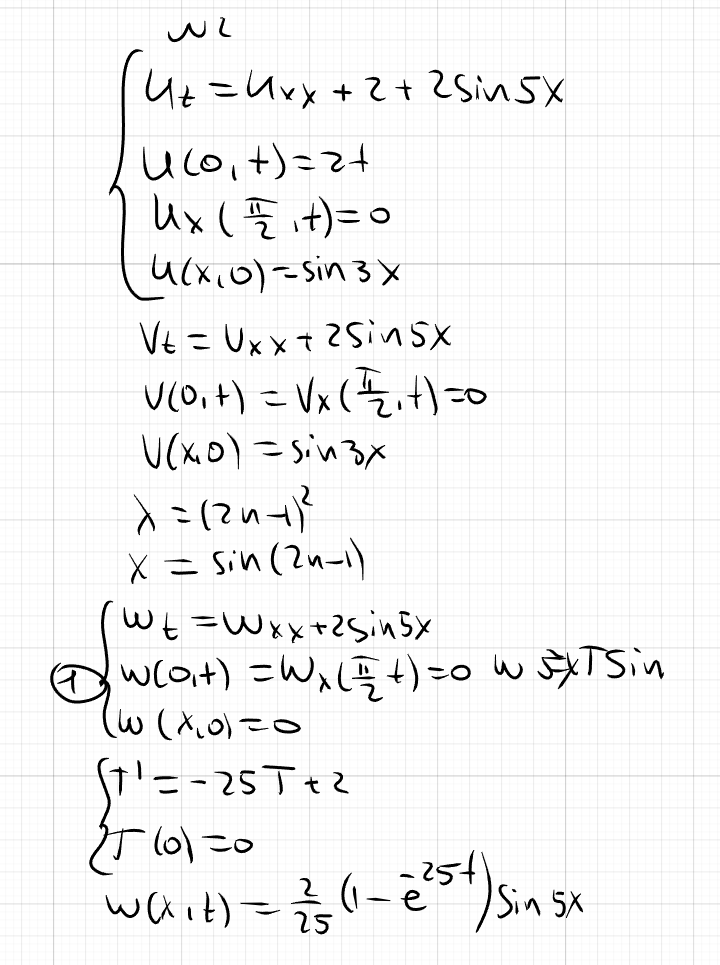 N2
U_t = U_xx + 2 + 2sin5x
U(0,t)=2t
U_x(π/2,t)=0
U(x,0)=sin3x
V_t = U_xx + 2sin5x
V(0,t) = V_x(π/2,t)=0
V(x,0) = sin3x
λ = (2n-1)²
X = sin(2n-1)
① W_t = W_xx + 2sin5x
W(0,t) = W_x(π/2 t)=0 W TSin
W(x,0)=0
T' = -25T + 2
T(0)=0
W(x,t) = 2/25 (1-e^-25t) sin5x